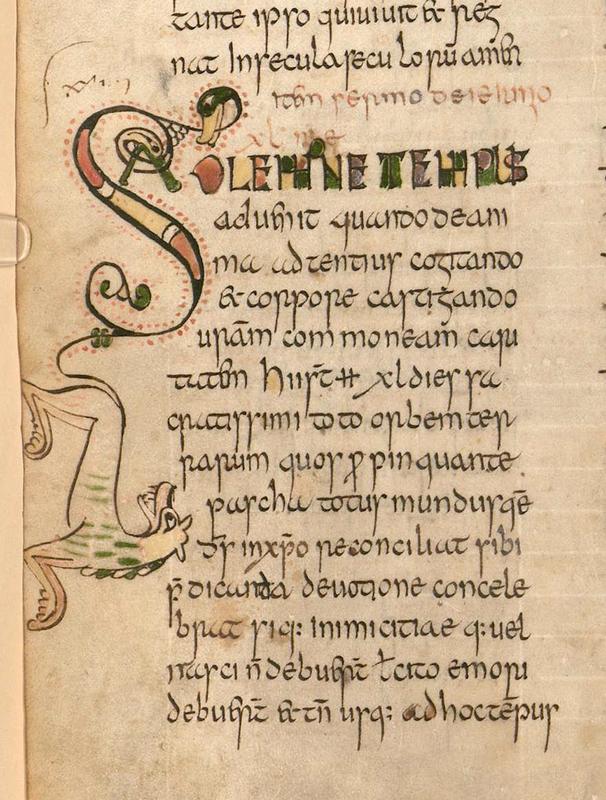 tante ipso qui uiuit & reg
nat In secula seculorū am̄
xuiii
Itm̄ sermo de ieiunio
xl me
SOLEMNE TEMPUS
aduenit quando de ani
ma adtentius cogitando
& corpore castigando
ur̄am commoneam̄ cari
tatem hii st̄ xl dies sa
cratissimi toto orbem ter
rarum quos ꝓpinquante
pascha totus mundus qē
ds̄ in xp̄o reconciliat sibi
p̄dicanda deuotione concele
brat siq: inimicitiae q: uel
nasci n̄ debuer̄t ł cito emori
debuer̄t & tn̄ usq; ad hoc tēpus